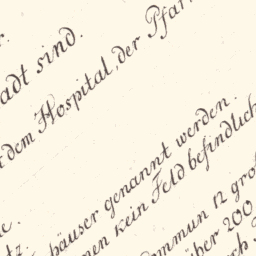 adt sind.
dem Hospital, der Pfar
häuser genannt werden.
kein Feld befindlich
mmun 12 gro
über 200